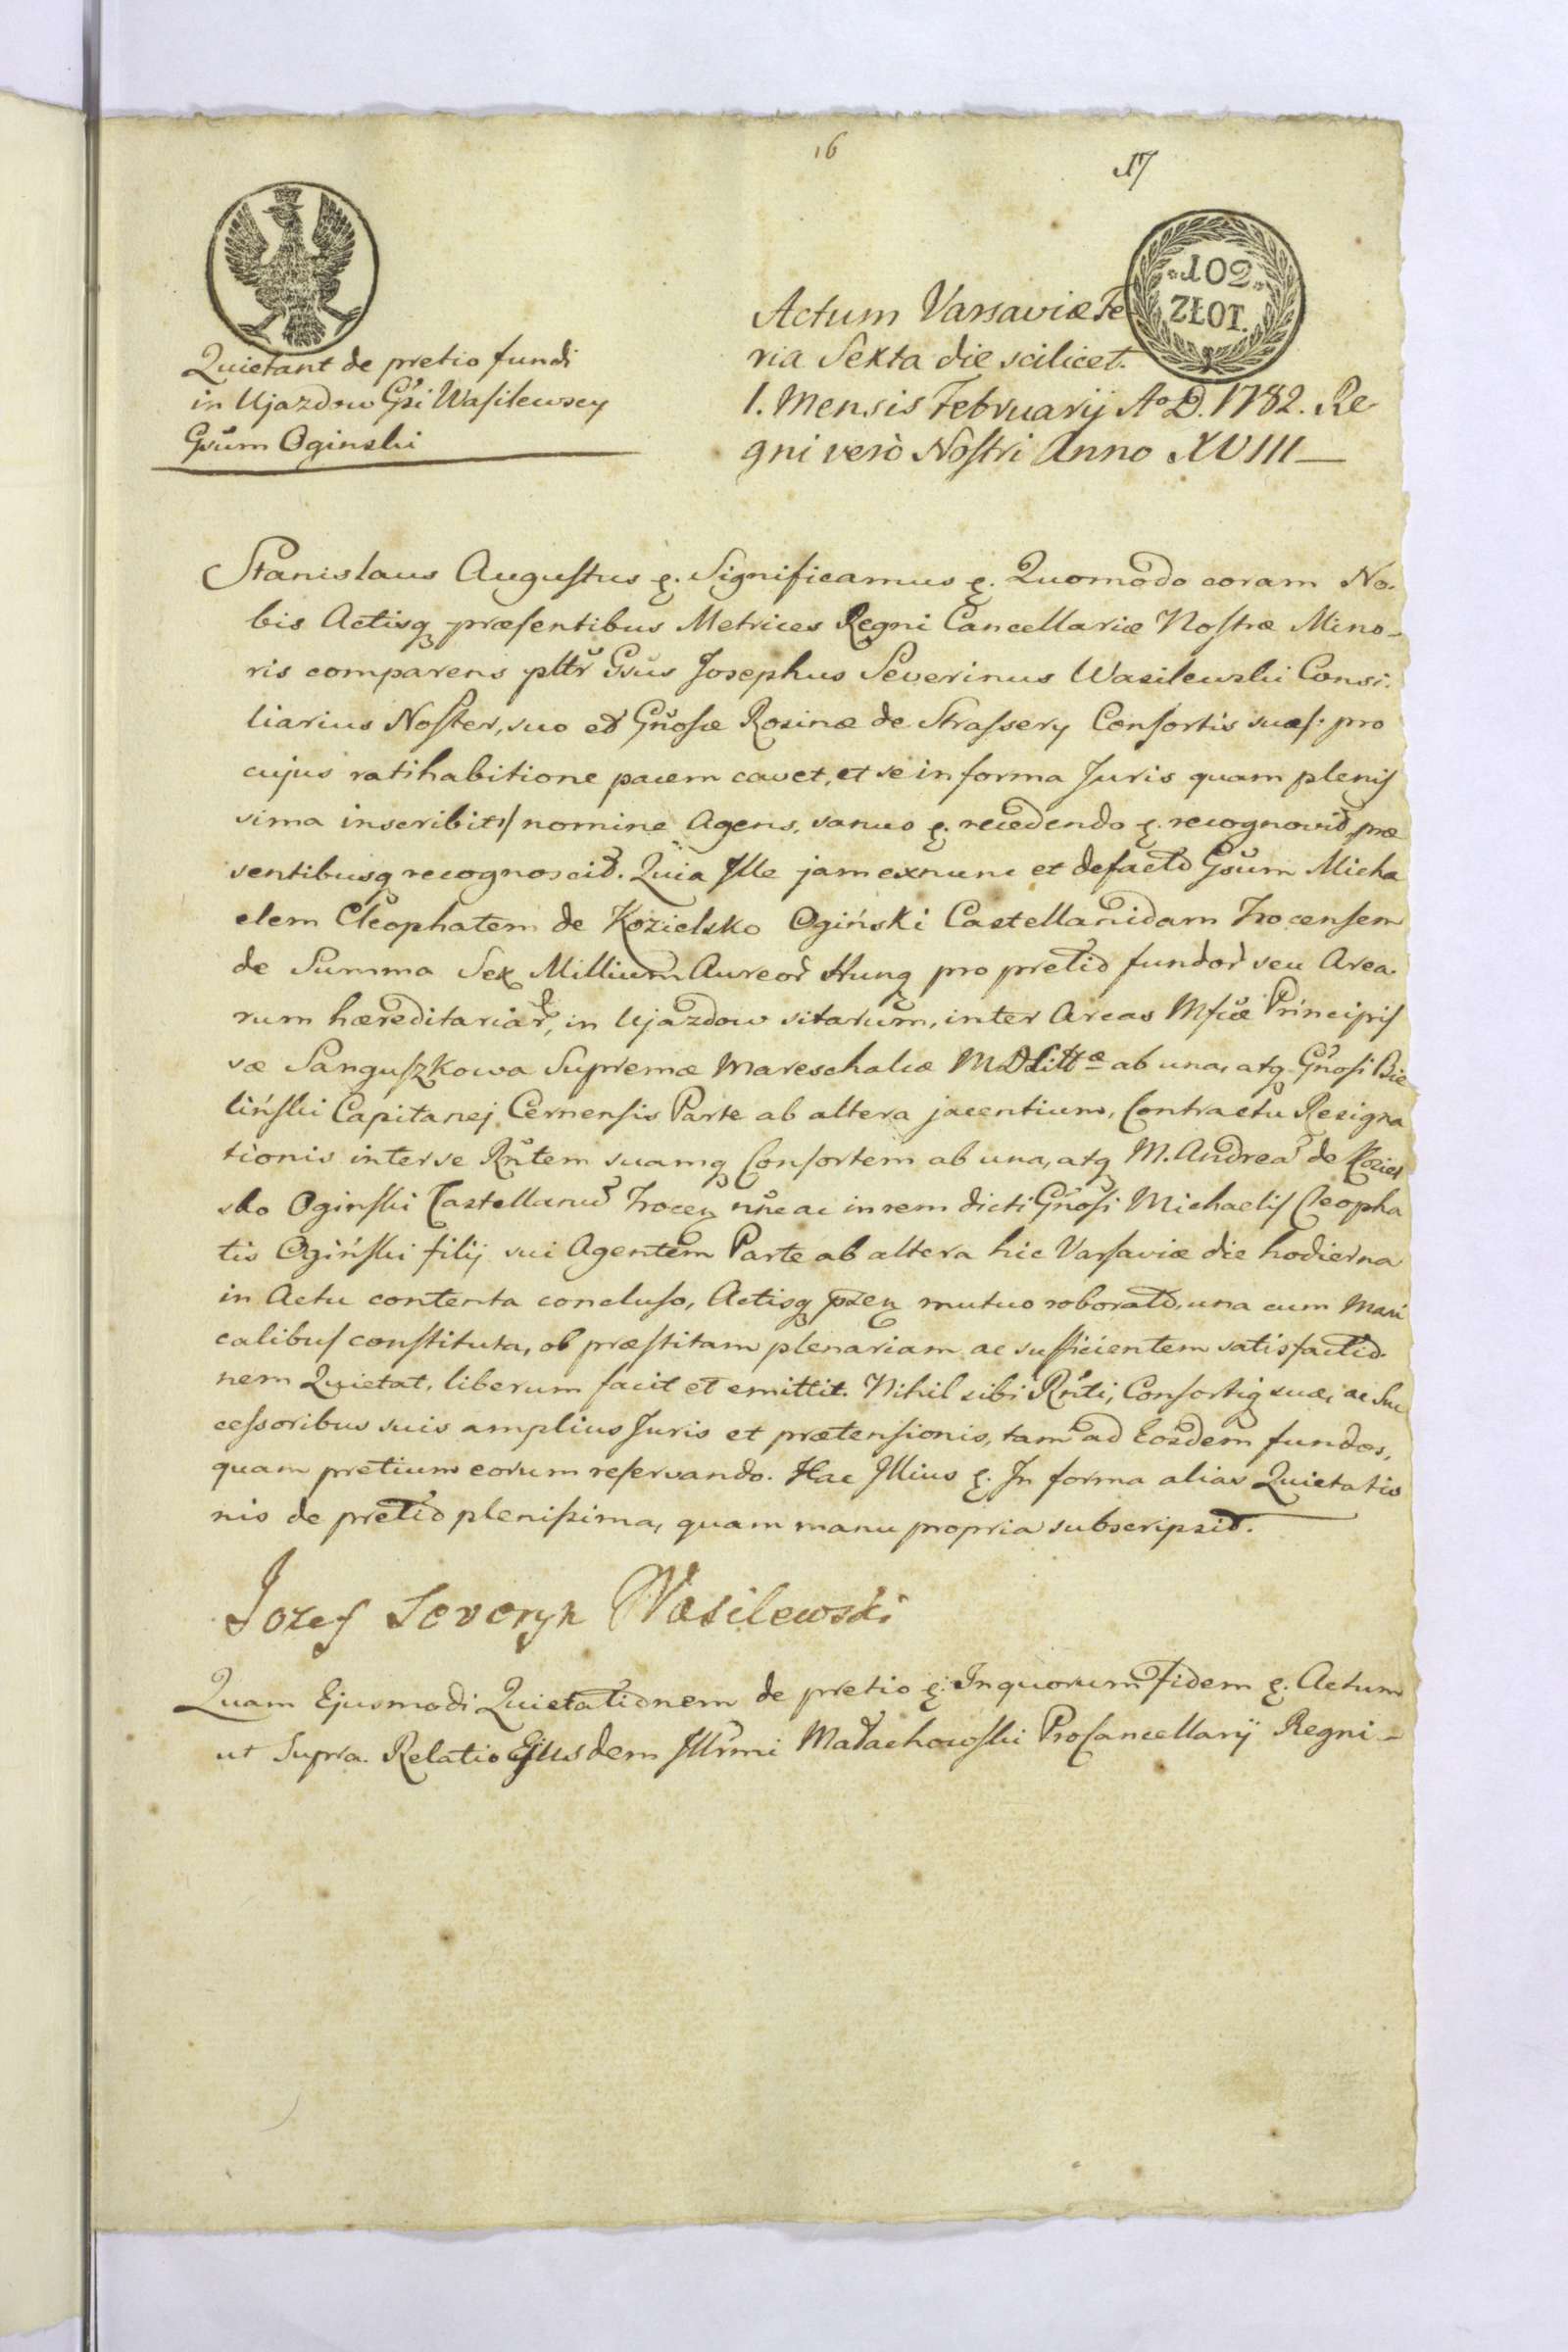 16
17
102
ZŁOT.
Quietant de pretio fundi
in Ujazdow Gsi Wasilewscy
Gsum Oginski
Actum Varsaviæ Fe
ria Sexta die scilicet.
1. Mensis Februarij Aº D. 1782. Re
gni verò Nostri Anno XVIII
Stanislaus Augustus &. Significamus &. Quomodo coram No.
bis Actisq præsentibus Metrices Regni Cancellariæ Nostræ Mino-
ris comparens pltr Gsus Josephus Severinus Wasilewski Consi.
liarius Noster, suo et Gnosæ Rosinæ de Strassery Consortis suæ /: pro
cujus ratihabitione pacem cavet, et se in forma Juris quam plenis
sima inscribit :/ nomine Agens, sanus &. recedendo &. recognovit, præ
sentibusq recognoscit. Quia Ille jam exnunc et defacto Gsum Micha
elem Cleophatem de Kozielsko Ogiński Castellanidam Trocensem
de Summa Sex Millium Aureor Hung pro pretio fundor seu Area
rum hæreditariar, in Ujazdow sitarum, inter Areas Mficæ Principis
sæ Sanguszkowa Supremæ Mareschalcæ M D Littæ ab una, atq Gnosi Bie
liński Capitanej Cernensis Parte ab altera jacentium, Contractu Resigna
tionis inter se Rntem suamq Consortem ab una, atq M. Andrea de Koziel
sko Oginski Castellanu Trocen nne ac in rem dicti Gnosi Michaelis Cleopha
tis Ogiński filij sui Agentem Parte ab altera hic Varsaviæ die hodierna
in Actu contenta concluso, Actisq pten mutuo roborato, una cum Mari
calibus constituta, ob præstitam plenariam ac sufficientem satisfactio
nem Quietat, liberum facit et emittit. Nihil sibi Rnti, Consortiq suæ, ac Suc
cessoribus suis amplius Juris et prætensionis, tam ad Eosdem fundos,
quam pretium eorum reservando. Hac Illius &. In forma alias Quietatio
nis de pretio plenissima, quam manu propria subscripsit.
Jozef Seweryn Wasilewski
Quam Ejusmodi Quietationem de pretio &. In quorum Fidem &. Actum
ut Supra. Relatio Ejusdem Illrmi Małachowski ProCancellarij Regni -